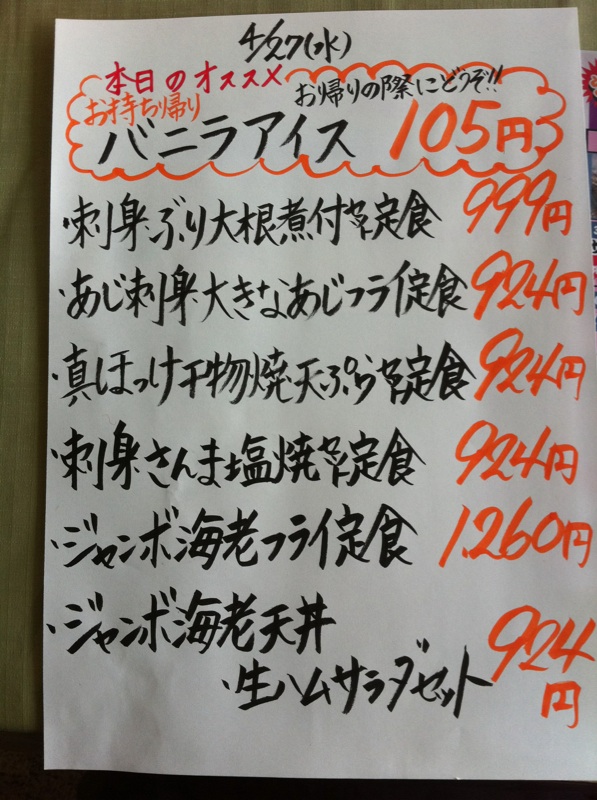 4/27(水)
本日のオススメ
お持ち帰り
お帰りの際にどうぞ!!
バニラアイス 105円
・刺身ぶり大根煮付やっこ定食 999円
・あじ刺身大きなあじフライ定食 924円
・真ほっけ干物焼天ぷらやっこ定食 924円
・刺身さんま塩焼やっこ定食 924円
・ジャンボ海老フライ定食 1,260円
・ジャンボ海老天丼
・生ハムサラダセット 924円